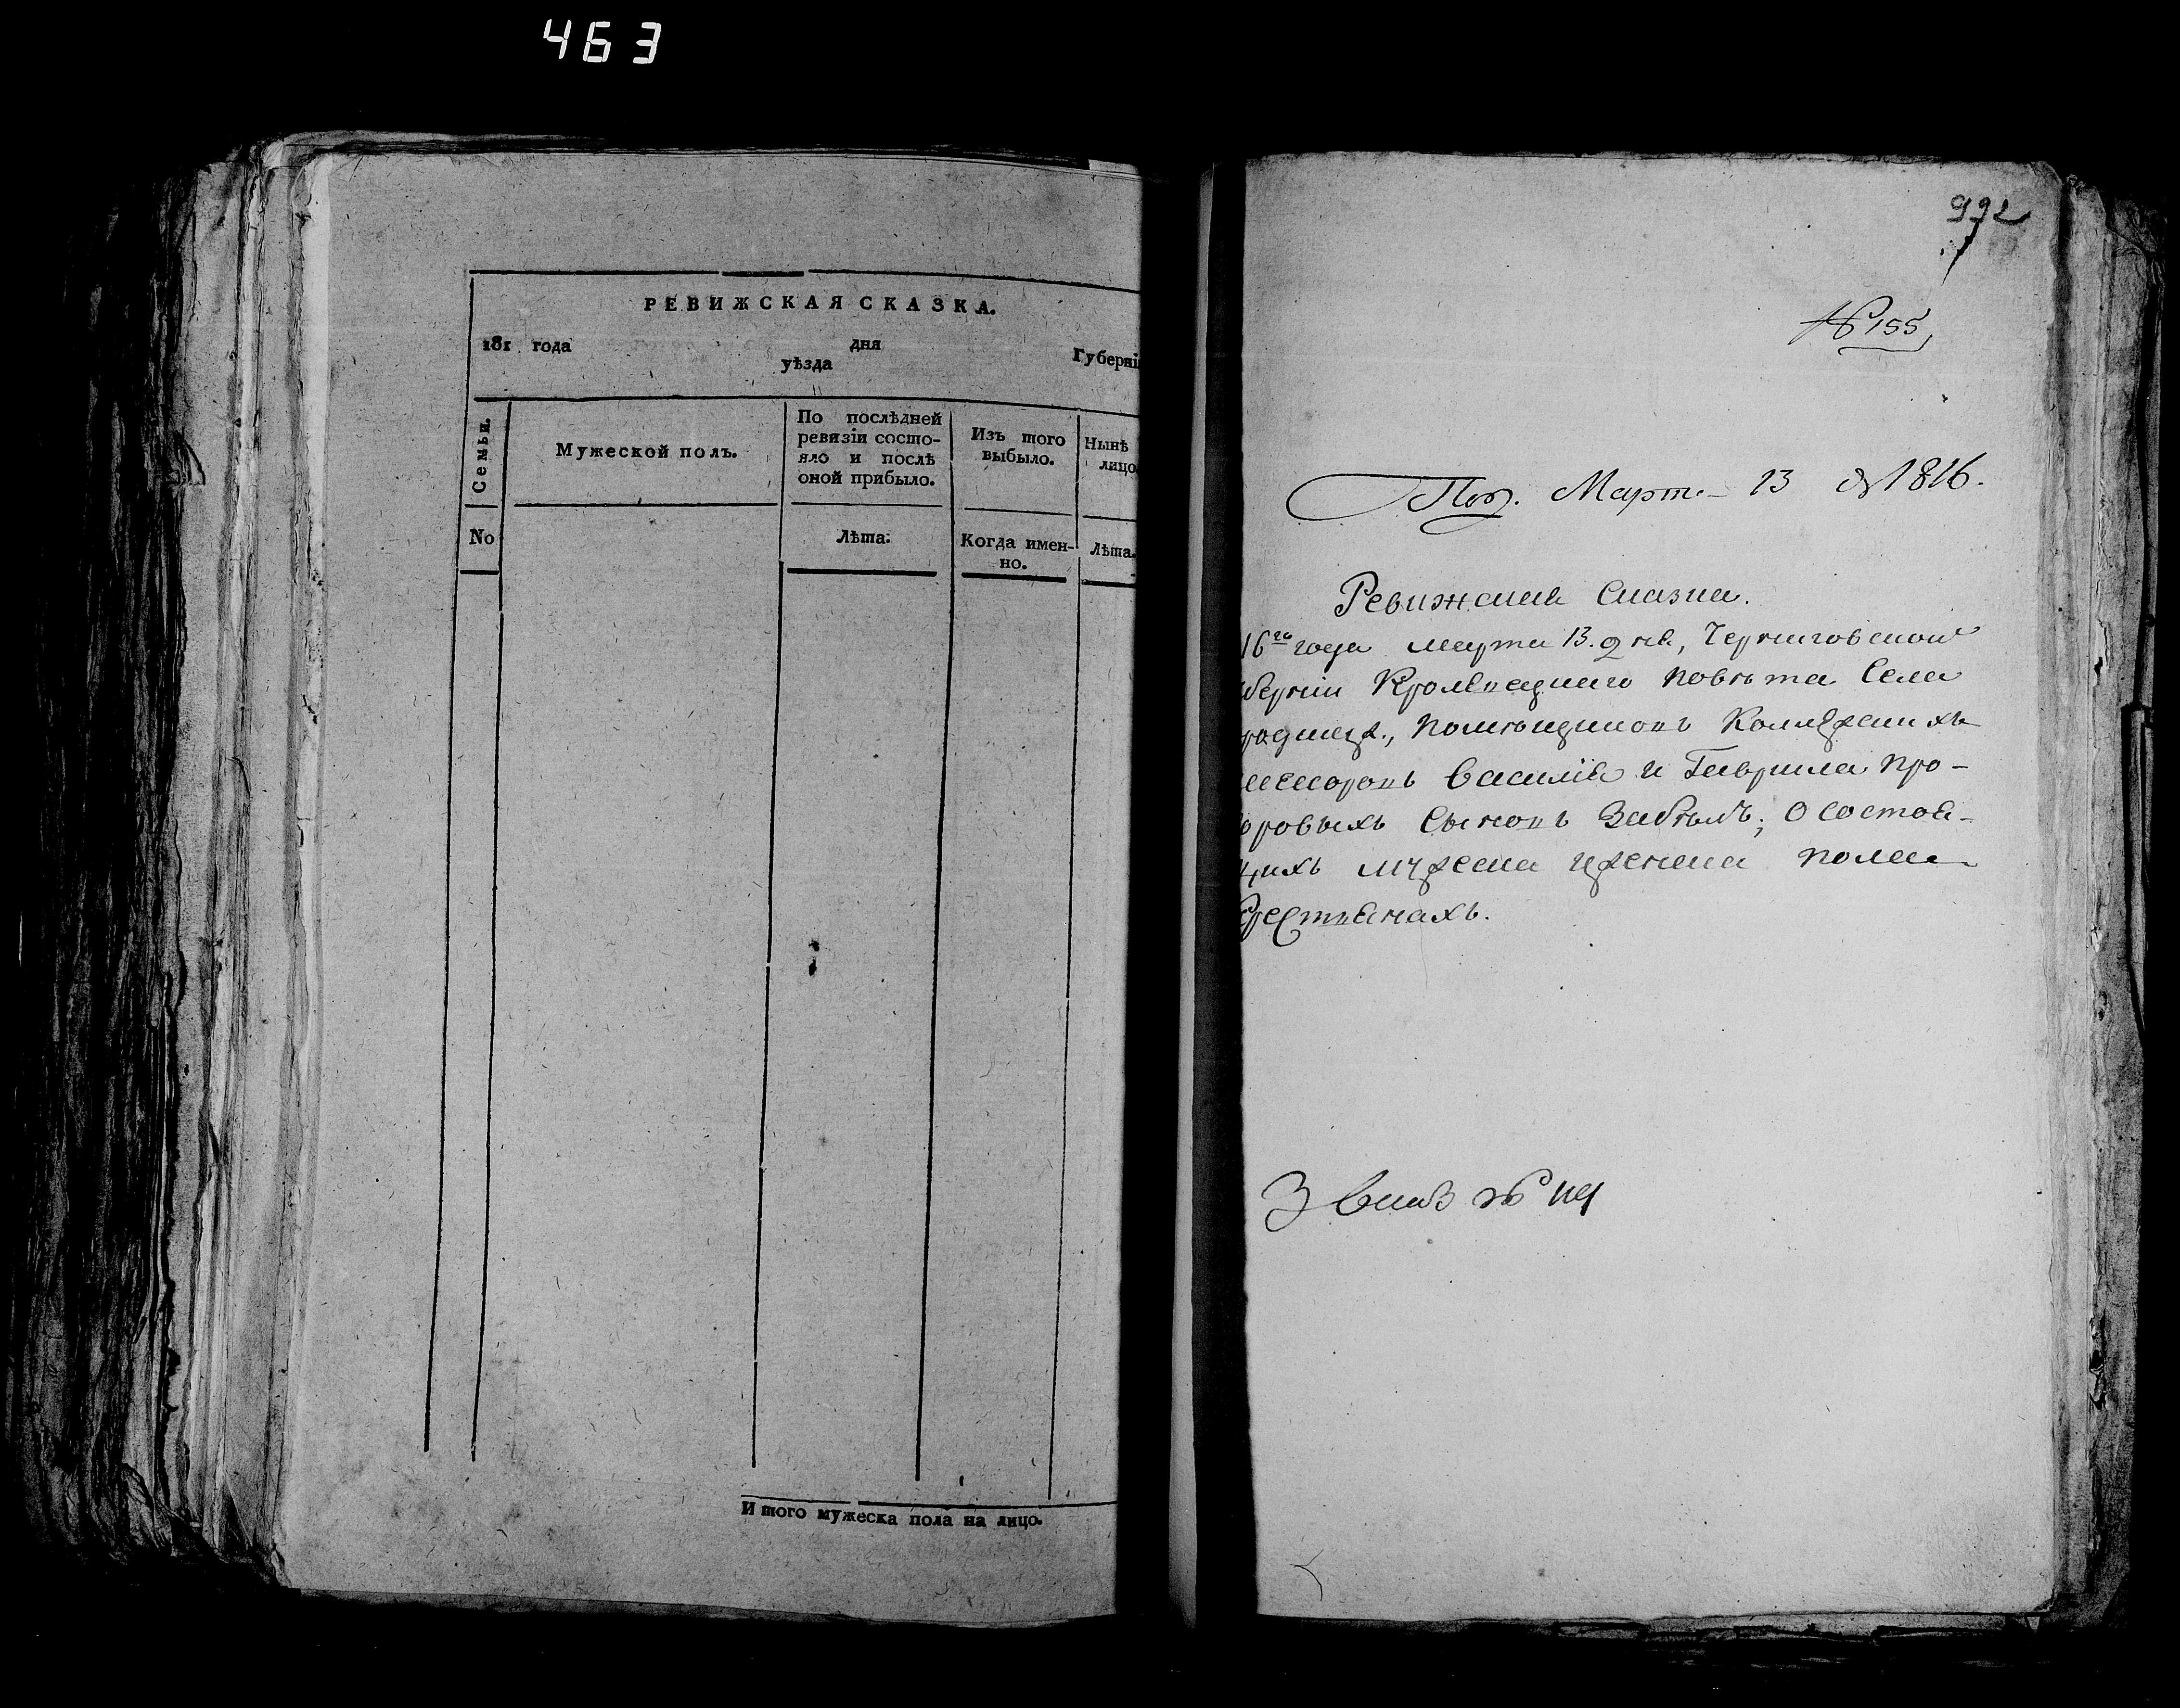 463
РЕВИЖСКАЯ СКАЗКА.
181 года дня Губерні
уѣзда
Семьи.
Мужеской полъ.
По послѣдней
ревизіи состо-
яло и послѣ
оной прибыло.
Изъ того
выбыло.
Нынѣ
лицо
No
Лѣта.
Когда имен-
но.
Лѣта.
Итого мужеска пола на лицо.
992
№ 155
Под. Март. 13 1816.
Ревижская Сказка.
16го года марта 13. дня, Черниговской
берніи Кролевецкаго повѣта Села
помѣщиковъ Коллежскихъ
сессоровъ Василія и Гаврила Про-
оровыхъ Сыновъ Забѣлъ, О состоя-
щихъ мужеска и женска пола
Крестьянахъ.
№